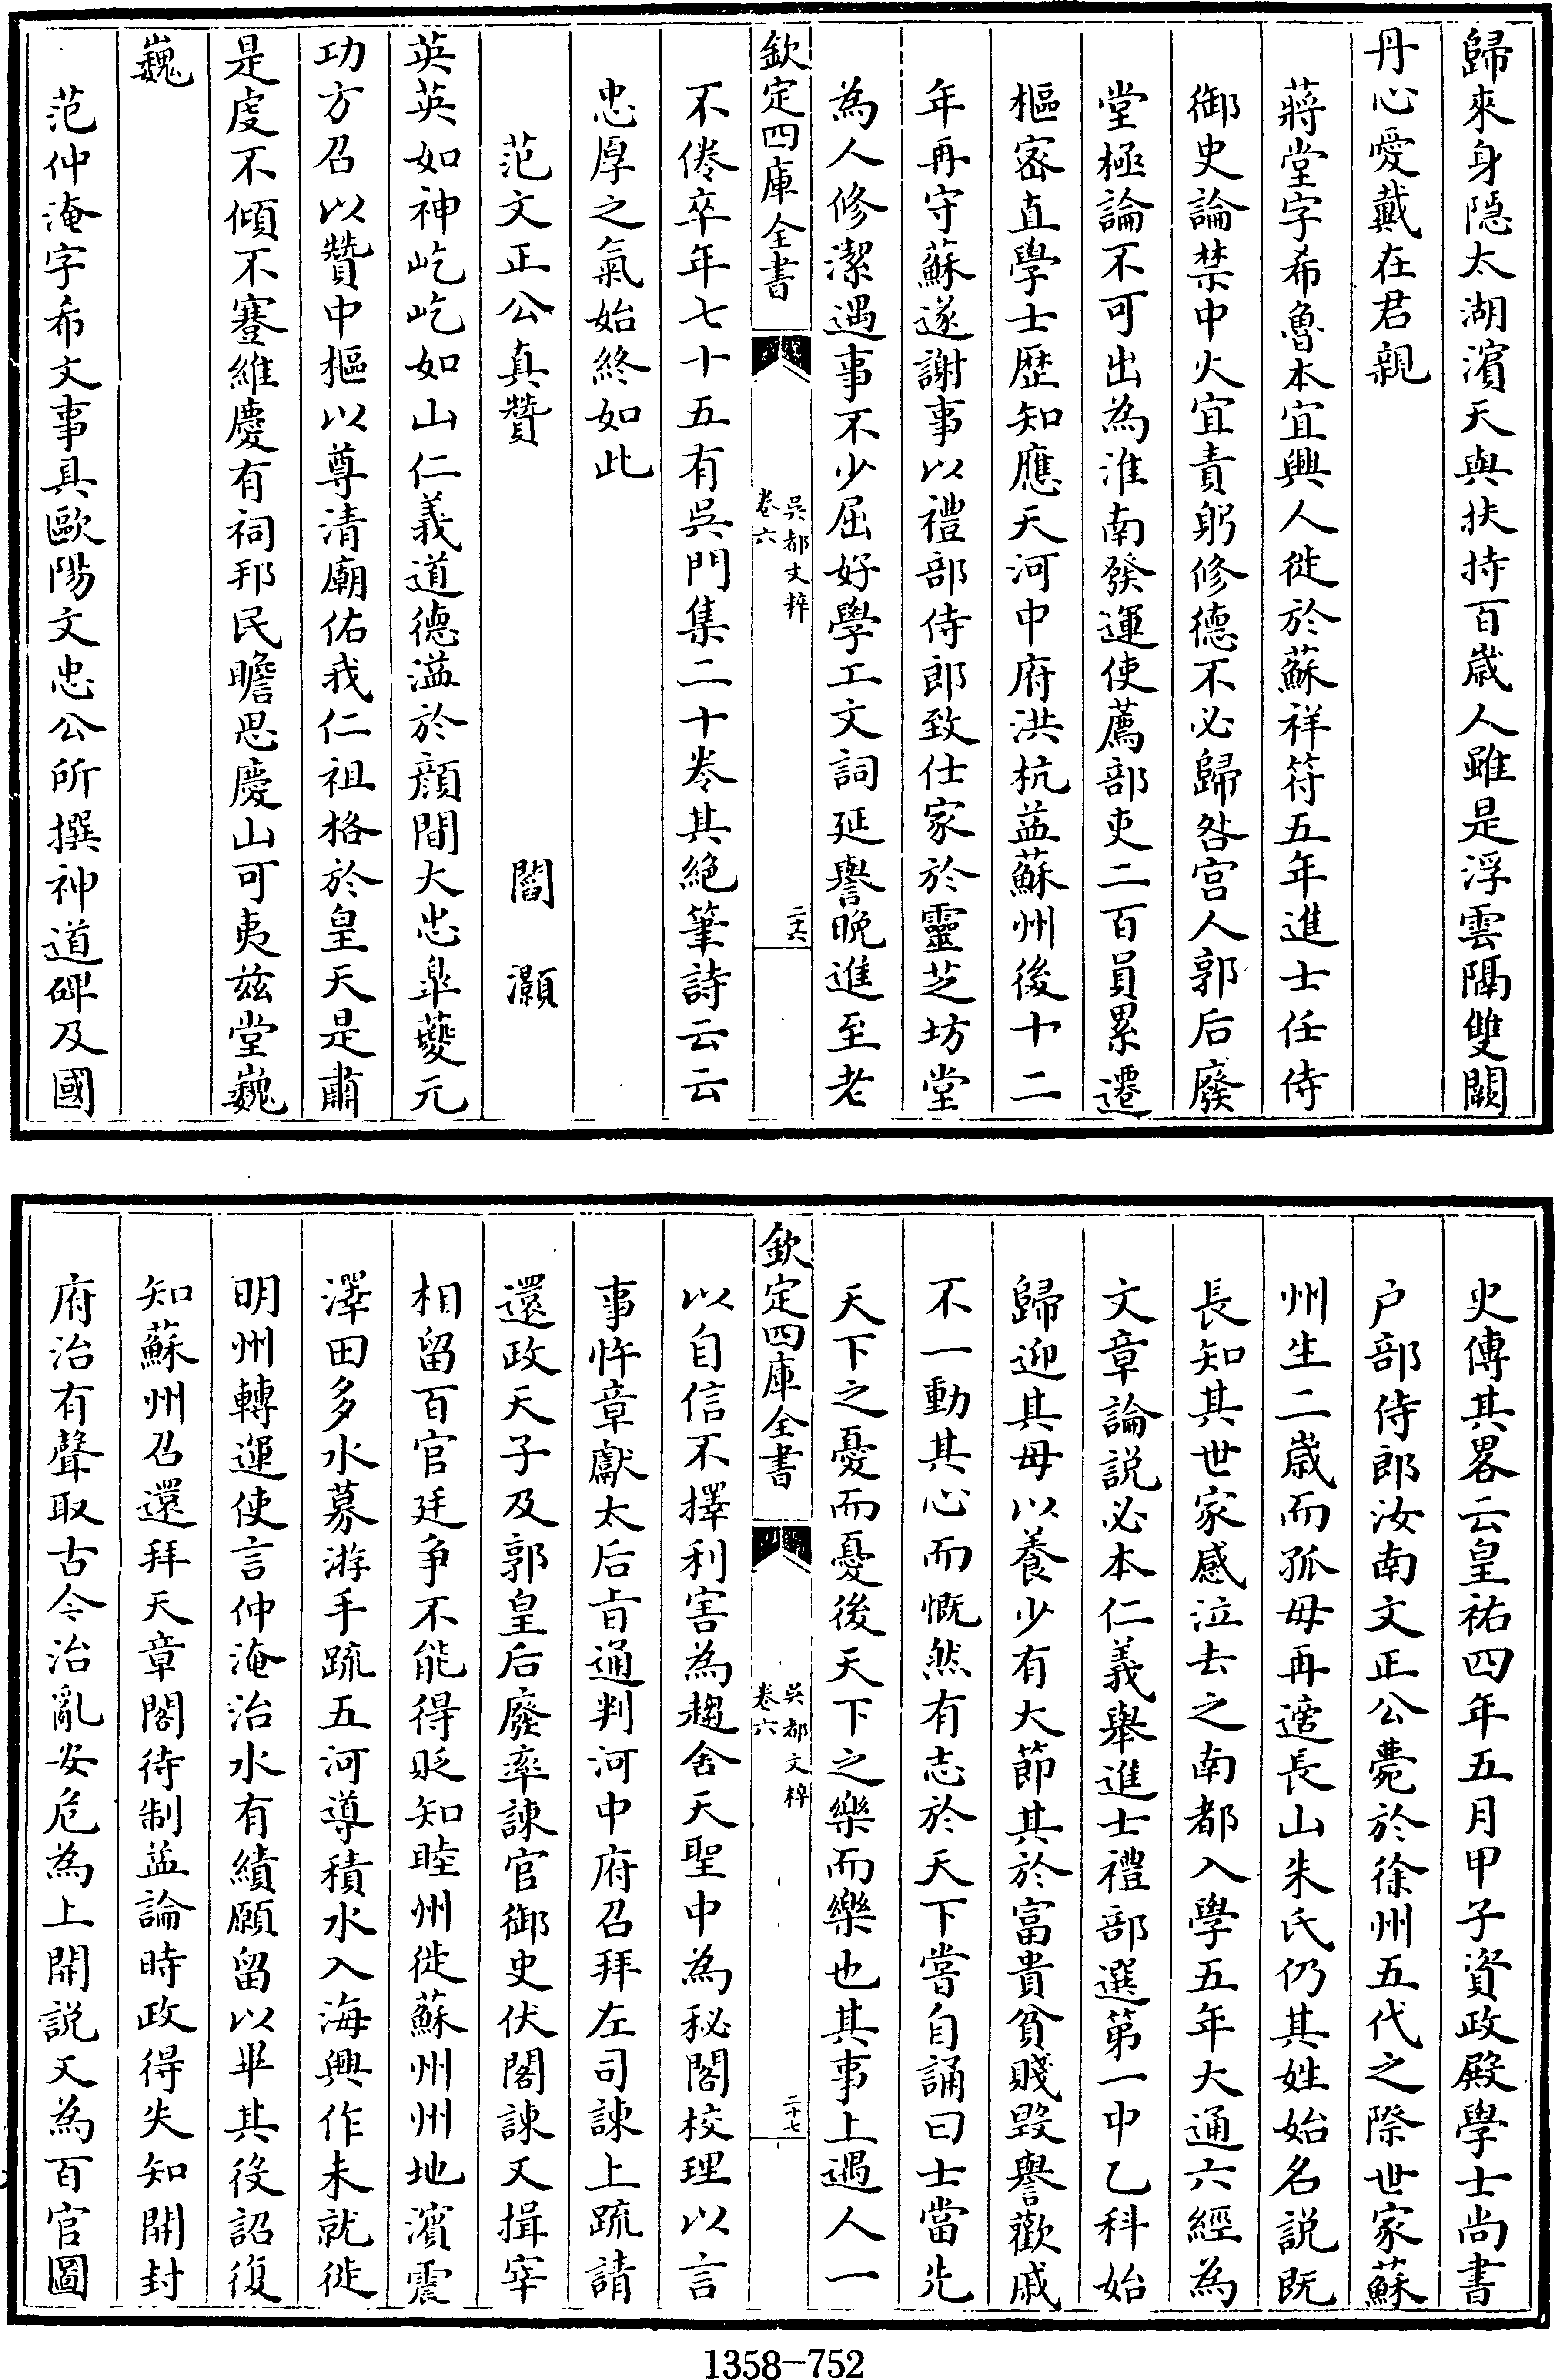 歸來身隠太湖濱天與扶持百歲人雖是浮雲隔雙闕
丹心愛戴在君親
蔣堂字希魯本宜興人徙於蘇祥符五年進士任侍
御史論禁中火宜責躬修德不必歸咎宫人郭后廢
堂極論不可出為淮南發運使薦部吏二百員累遷
樞密直學士歴知應天河中府洪杭益蘇州後十二
年再守蘇遂謝事以禮部侍郎致仕家於靈芝坊堂
為人修潔遇事不少屈好學工文詞延譽晩進至老
欽定四庫全書
吳都文粹
卷六
二十六
不倦卒年七十五有吳門集二十卷其絶筆詩云云
忠厚之氣始終如此
范文正公真贊
閻灝
英英如神屹屹如山仁義道德溢於顔間大忠臯夔元
功方召以贊中樞以尊清廟佑我仁祖格於皇天是肅
是虔不傾不蹇維慶有祠邦民瞻思慶山可夷兹堂巍
巍
范仲淹字希文事具歐陽文忠公所撰神道碑及國
史傳其畧云皇祐四年五月甲子資政殿學士尚書
户部侍郎汝南文正公薨於徐州五代之際世家蘇
州生二歲而孤母再適長山朱氏仍其姓始名説既
長知其世家感泣去之南都入學五年大通六經為
文章論説必本仁義舉進士禮部選第一中乙科始
歸迎其母以養少有大節其於富貴貧賤毀譽歡戚
不一動其心而慨然有志於天下嘗自誦曰士當先
天下之憂而憂後天下之樂而樂也其事上遇人一
欽定四庫全書
吳都文粹
卷六
二十七
以自信不擇利害為趨舍天聖中為秘閣校理以言
事忤章獻太后㫖通判河中府召拜左司諫上疏請
還政天子及郭皇后廢率諫官御史伏閤諫又揖宰
相留百官廷争不能得貶知睦州徙蘇州州地濱震
澤田多水募游手疏五河導積水入海興作未就徙
明州轉運使言仲淹治水有績願留以畢其役詔復
知蘇州召還拜天章閣待制益論時政得失知開封
府治有聲取古今治亂安危為上開説又為百官圖
1358-752